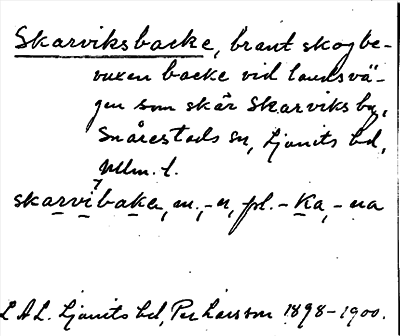 Skarviksbacke, brant skogbe-
vuxen backe vid landsvä-
gen som skär Skarviks by,
Snårestads sn, Ljunits hd,
Mlm. l.
skarvibake, m., -n, pl. -ka, -na
L.A.L. Ljunits hd, Per Larsson 1898-1900.